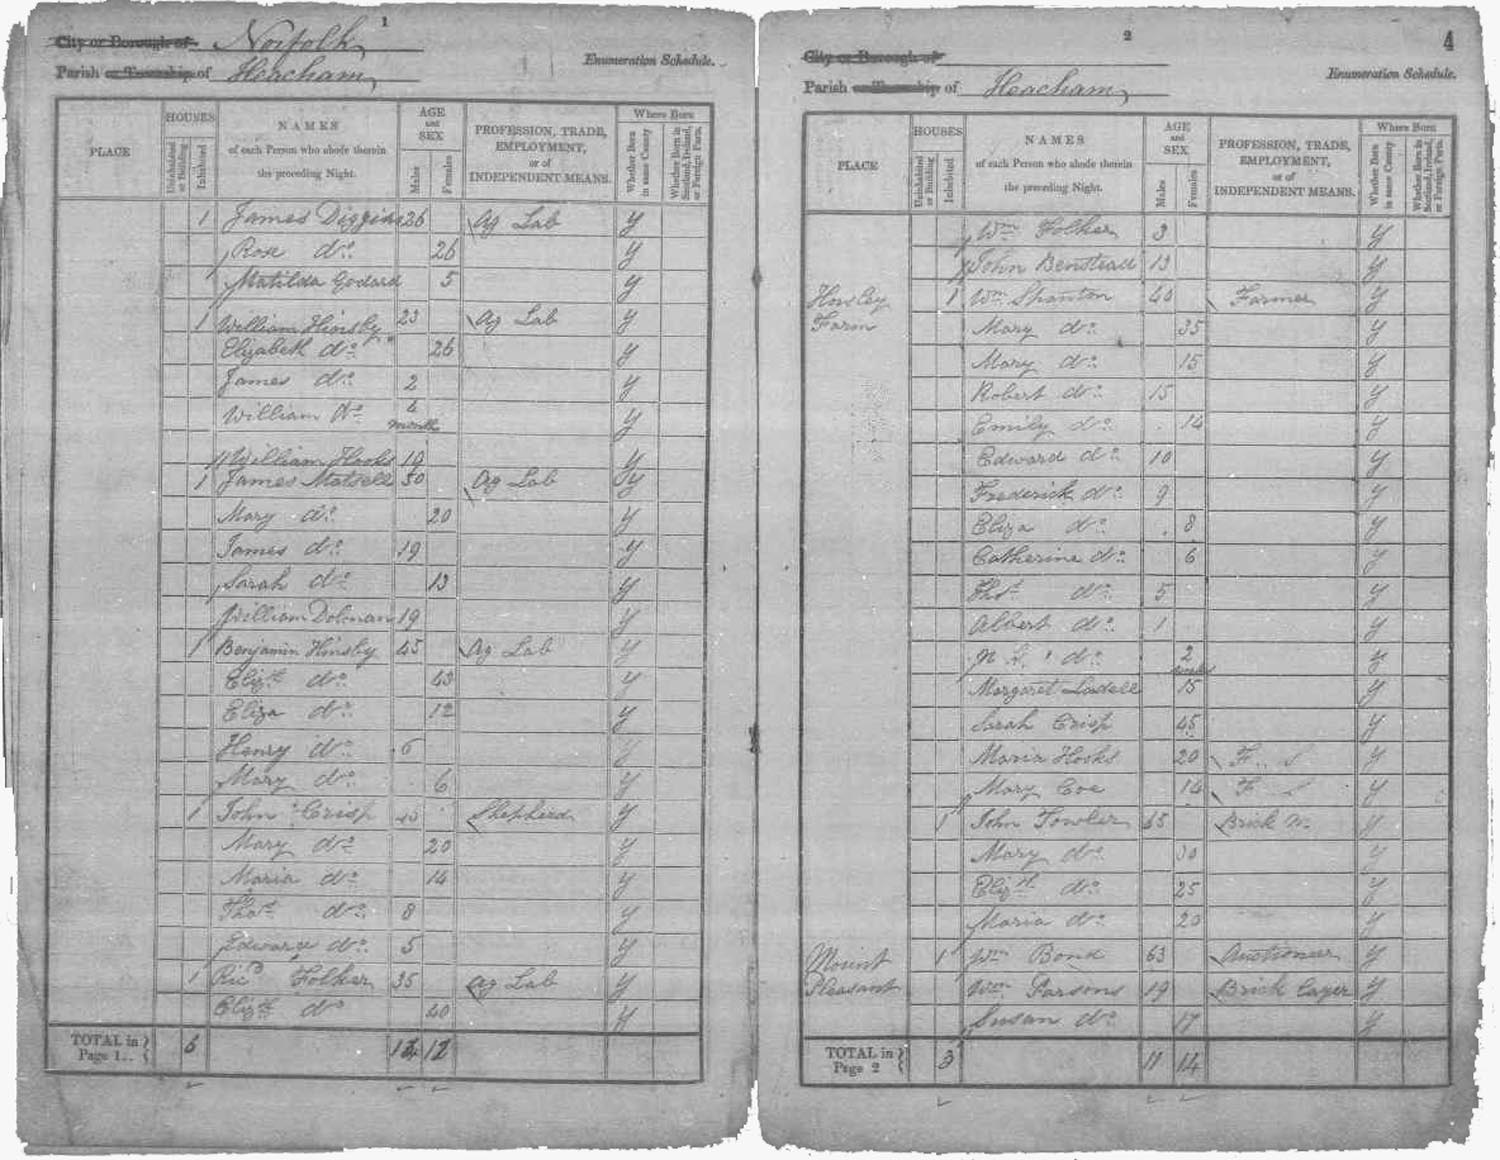 1
City or Borough of Norfolk
Parish or Township of Heacham
Enumeration Schedule.
PLACE
HOUSES
Uninhabited or Building
Inhabited
NAMES
of each Person who abode therein
the preceding Night.
AGE
and
SEX
Males
Females
PROFESSION, TRADE,
EMPLOYMENT,
or of
INDEPENDENT MEANS.
Where Born
Whether Born in same County
Whether Born in Scotland, Ireland, or Foreign Parts.
1 James Diggins 26 Ag Lab y
Rose do. 26 y
Matilda Godard 5 y
1 William Hinsby 23 Ag Lab y
Elizabeth do. 26 y
James do. 2 y
William do. 4 month y
William Hooks 19 y
1 James Matsell 50 Ag Lab y
Mary do. 20 y
James do. 19 y
Sarah do. 13 y
William Dolman 19 y
1 Benjamin Hinsby 45 Ag Lab y
Elizth do. 43 y
Eliza do. 12 y
Henry do. 6 y
Mary do. 6 y
1 John Crisp 45 Shepherd y
Mary do. 20 y
Maria do. 14 y
Thos do. 8 y
Edward do. 5 y
1 Ricd Folker 35 Ag Lab y
Elizth do 40 y
TOTAL in Page 1.. 6 12
2
4
City or Borough of
Parish or Township of Heacham
Enumeration Schedule.
PLACE
HOUSES
Uninhabited or Building
Inhabited
NAMES
of each Person who abode therein
the preceding Night.
AGE
and
SEX
Males
Females
PROFESSION, TRADE,
EMPLOYMENT,
or of
INDEPENDENT MEANS.
Where Born
Whether Born in same County
Whether Born in Scotland, Ireland, or Foreign Parts.
Wm Folker 3 y
John Benstead 13 y
1 Wm Shanton 40 Farmer y
Farm Mary do. 35 y
Mary do. 15 y
Robert do. 15 y
Emily do. 14 y
Edward do. 10 y
Frederick do. 9 y
Eliza do. 8 y
Catherine do. 6 y
Thos do. 5 y
Albert do. 1 y
N. K. do. 2 weeks y
Margaret Ladell 15 y
Sarah Crisp 45 y
Maria Hooks 20 F. S y
Mary Coe 14 F. S y
1 John Fowler 65 Brick M. y
Mary do. 30 y
Elizth do. 25 y
Maria do. 20 y
Mount 1 Wm Bond 63 Auctioneer y
Pleasant Wm Parsons 19 Brick Layer y
Susan do. 17 y
TOTAL in Page 2 3 11 14